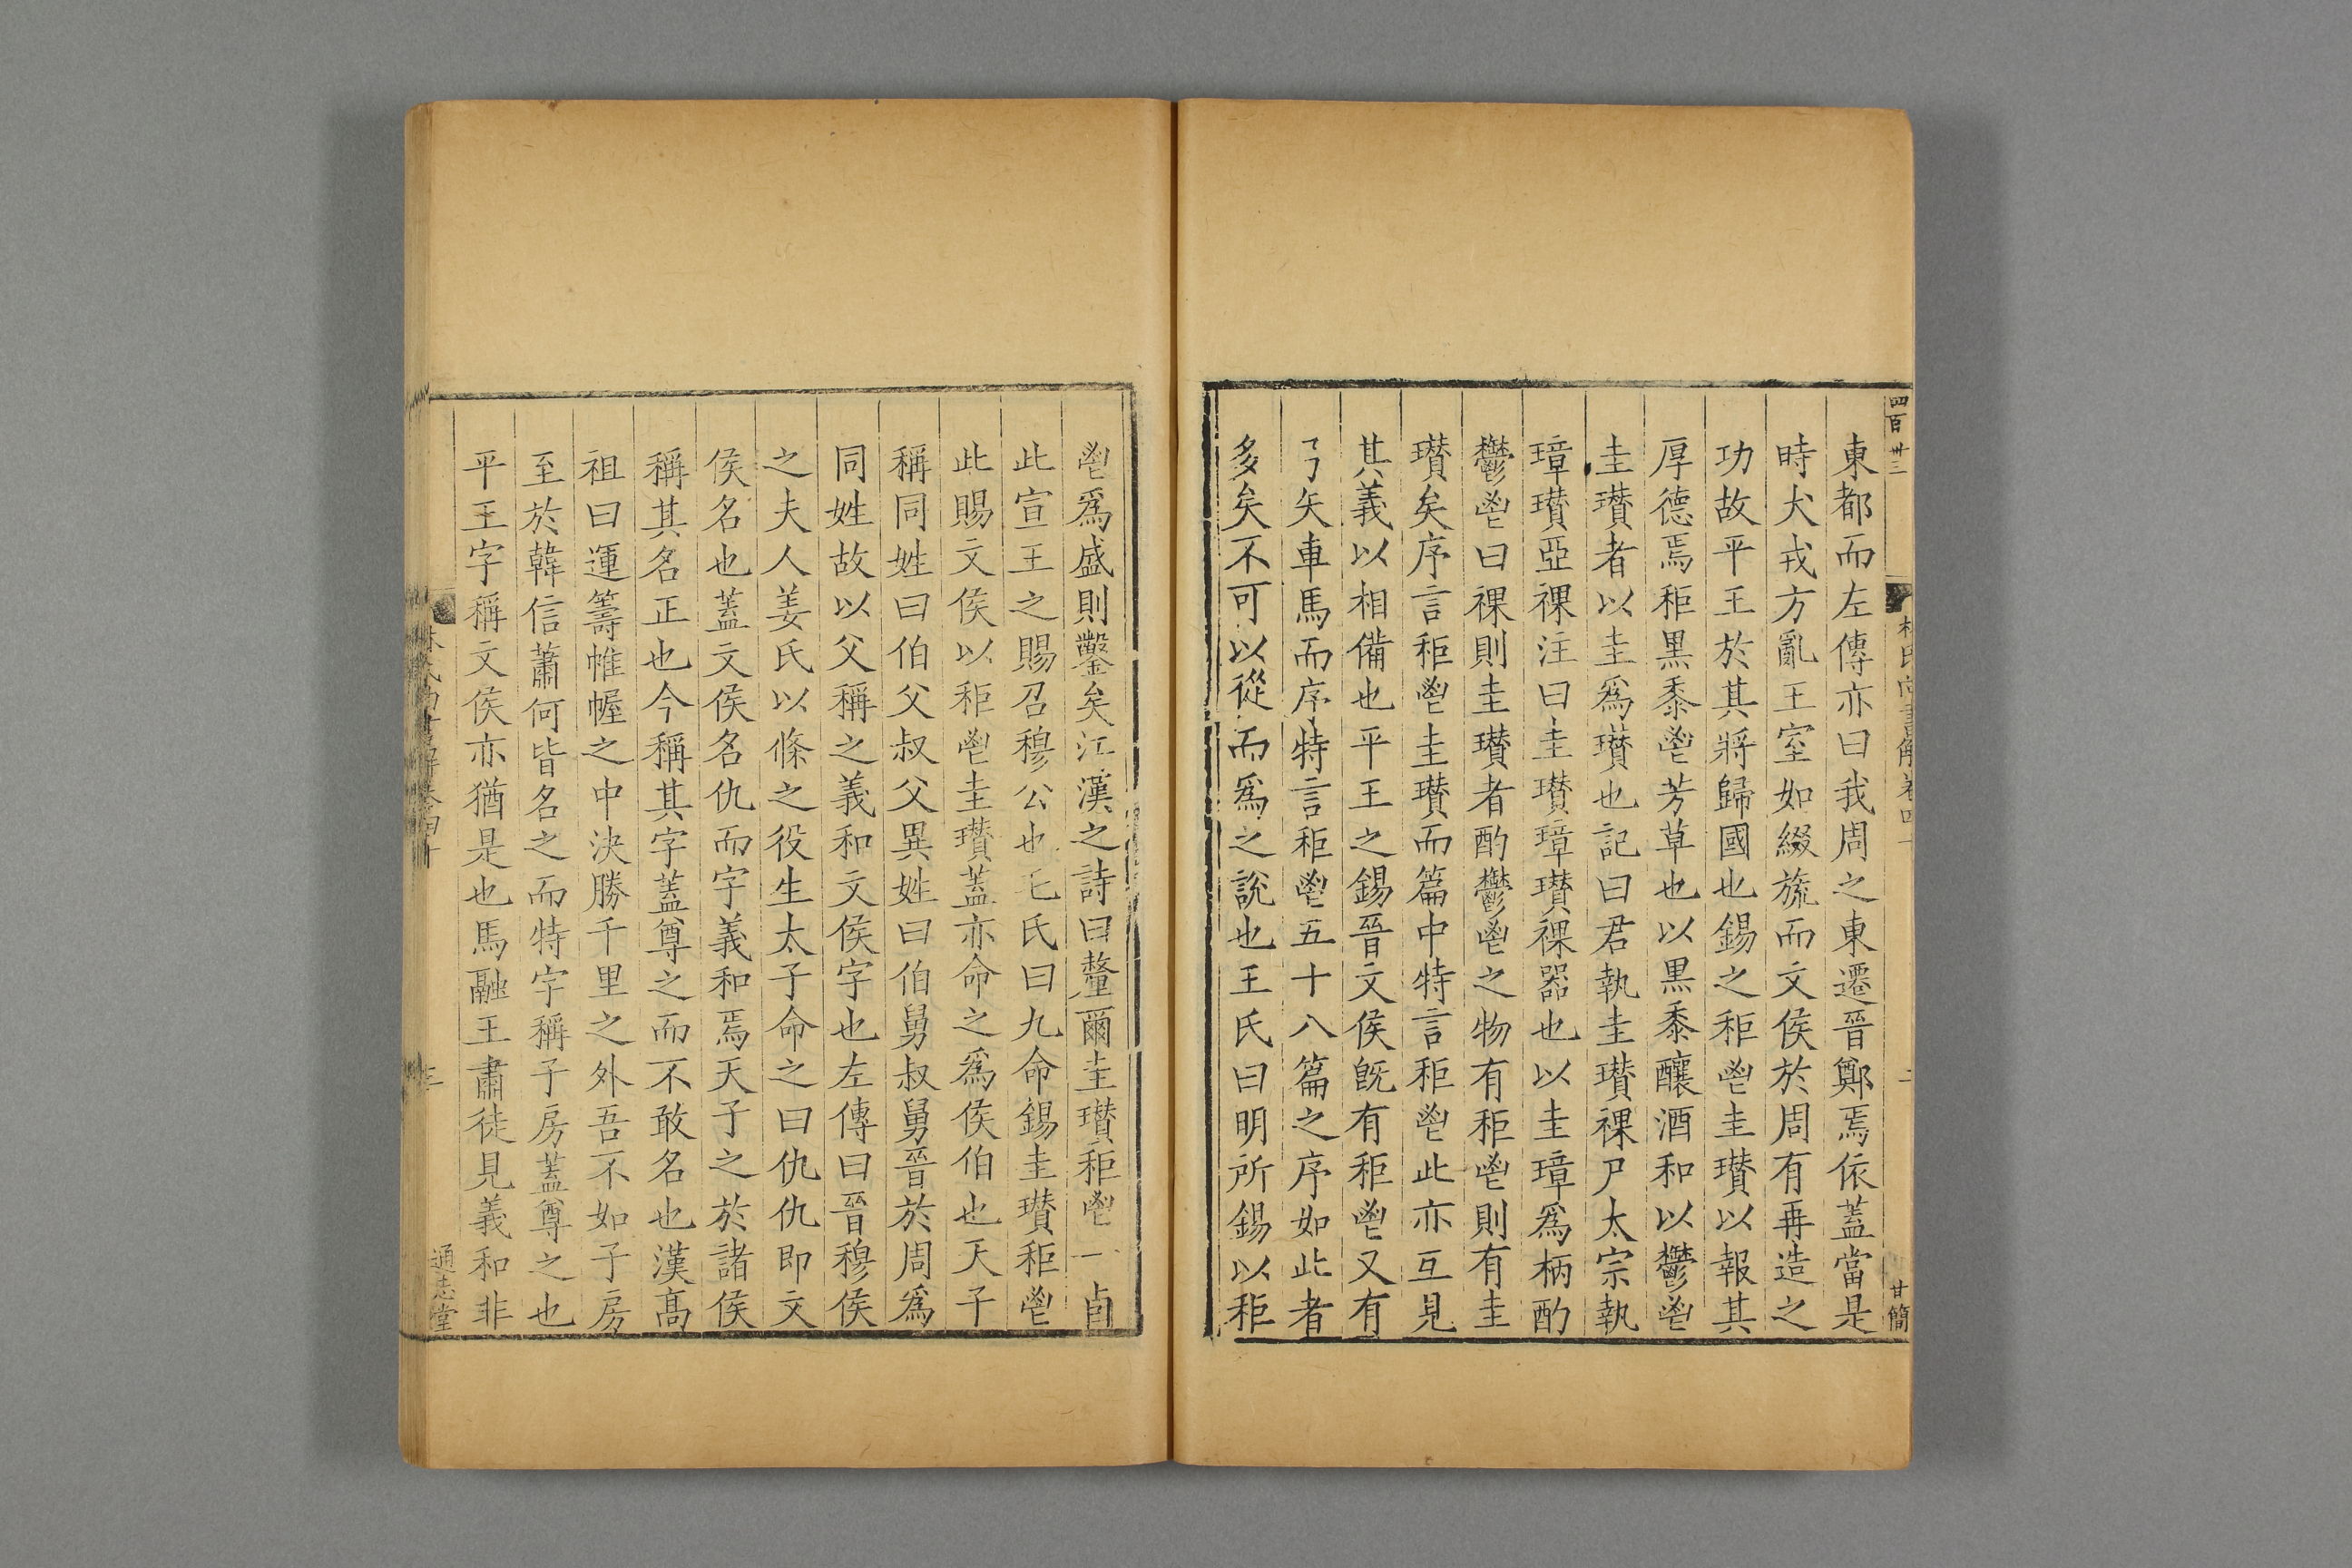 四百卅三
東都而左傳亦曰我周之東遷晉鄭焉依蓋當是
時犬戎方亂王室如綴旒而文侯於周有再造之
功故平王於其將歸國也錫之秬鬯圭瓚以報其
厚德焉秬黑黍鬯芳草也以黑黍釀酒和以鬱鬯
圭瓚者以圭爲瓚也記曰君執圭瓚祼尸太宗執
璋瓚亞祼注曰圭瓚璋瓚祼器也以圭璋爲柄酌
鬱鬯曰祼則圭瓚者酌鬱鬯之物有秬鬯則有圭
瓚矣序言秬鬯圭瓚而篇中特言秬鬯此亦互見
其義以相備也平王之錫晉文侯旣有秬鬯又有
弓矢車馬而序特言秬鬯五十八篇之序如此者
多矣不可以從而爲之說也王氏曰明所錫以秬
鬯爲盛則鑿矣江漢之詩曰釐爾圭瓚秬鬯一卣
此宣王之賜召穆公也毛氏曰九命錫圭瓚秬鬯
此賜文侯以秬鬯圭瓚蓋亦命之爲侯伯也天子
稱同姓曰伯父叔父異姓曰伯舅叔舅晉於周爲
同姓故以父稱之義和文侯字也左傳曰晉穆侯
之夫人姜氏以條之役生太子命之曰仇仇即文
侯名也蓋文侯名仇而字義和焉天子之於諸侯
稱其名正也今稱其字蓋尊之而不敢名也漢高
祖曰運籌帷幄之中決勝千里之外吾不如子房
至於韓信蕭何皆名之而特字稱子房蓋尊之也
平王字稱文侯亦猶是也馬融王肅徒見義和非
林氏尚書解卷四十
三
通志堂
林氏尚書解卷四十
二
甘簡